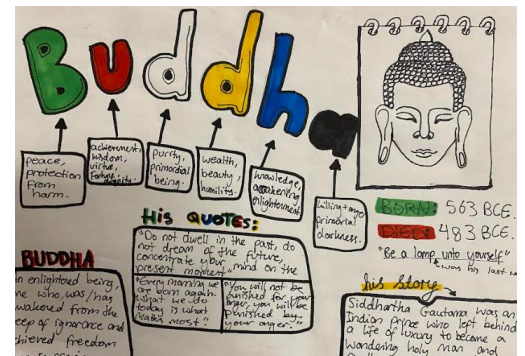 Buddha
peace,
protection
from
harm.
achievement,
wisdom,
virtue,
fortune,
dignity.
purity,
primordial
being.
wealth,
beauty,
humility.
knowledge,
awakening
enlightenment
killing + anger
primorial
darkness.
BORN: 563 BCE.
DIED: 483 BCE.
"Be a lamp unto yourself"
was his last
His QUOTES:
"Do not dwell in the past, do
not dream of the future,
concentrate your mind on the
present moment."
"Every morning we
are born again.
What we do
today is what
matters most."
"You will not be
punished for your
anger, you will be
punished by
your anger."
BUDDHA
an enlightened being,
one who was/has
awakened from the
sleep of ignorance and
achieved freedom
his story
Siddhartha Gautama was an
Indian Prince who left behind
a life of luxury to become a
wondering holy man and